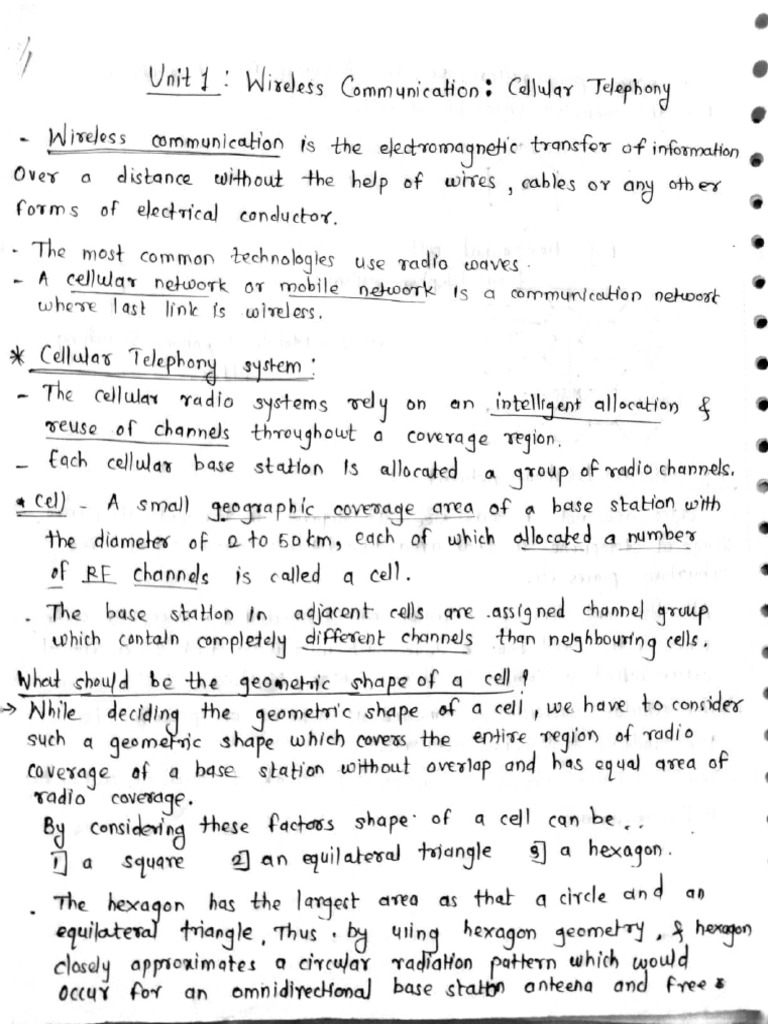 Unit 1 : Wireless Communication : Cellular Telephony
- Wireless communication is the electromagnetic transfer of information
Over a distance without the help of wires, cables or any other
forms of electrical conductor.
- The most common technologies use radio waves.
- A cellular network or mobile network is a communication network
where last link is wireless.
* Cellular Telephony system :
- The cellular radio systems rely on an intelligent allocation &
reuse of channels throughout a coverage region.
- Each cellular base station is allocated a group of radio channels.
* Cell - A small geographic coverage area of a base station with
the diameter of 2 to 50 km, each of which allocated a number
of RF channels is called a cell.
. The base station in adjacent cells are assigned channel group
which contain completely different channels than neighbouring cells.
What should be the geometric shape of a cell?
→ While deciding the geometric shape of a cell, we have to consider
such a geometric shape which covers the entire region of radio
coverage of a base station without overlap and has equal area of
radio coverage.
By considering these factors shape of a cell can be...
1] a square 2] an equilateral triangle 3] a hexagon.
. The hexagon has the largest area as that a circle and an
equilateral triangle, Thus by using hexagon geometry, & hexagon
closely approximates a circular radiation pattern which would
occur for an omnidirectional base station anteena and free